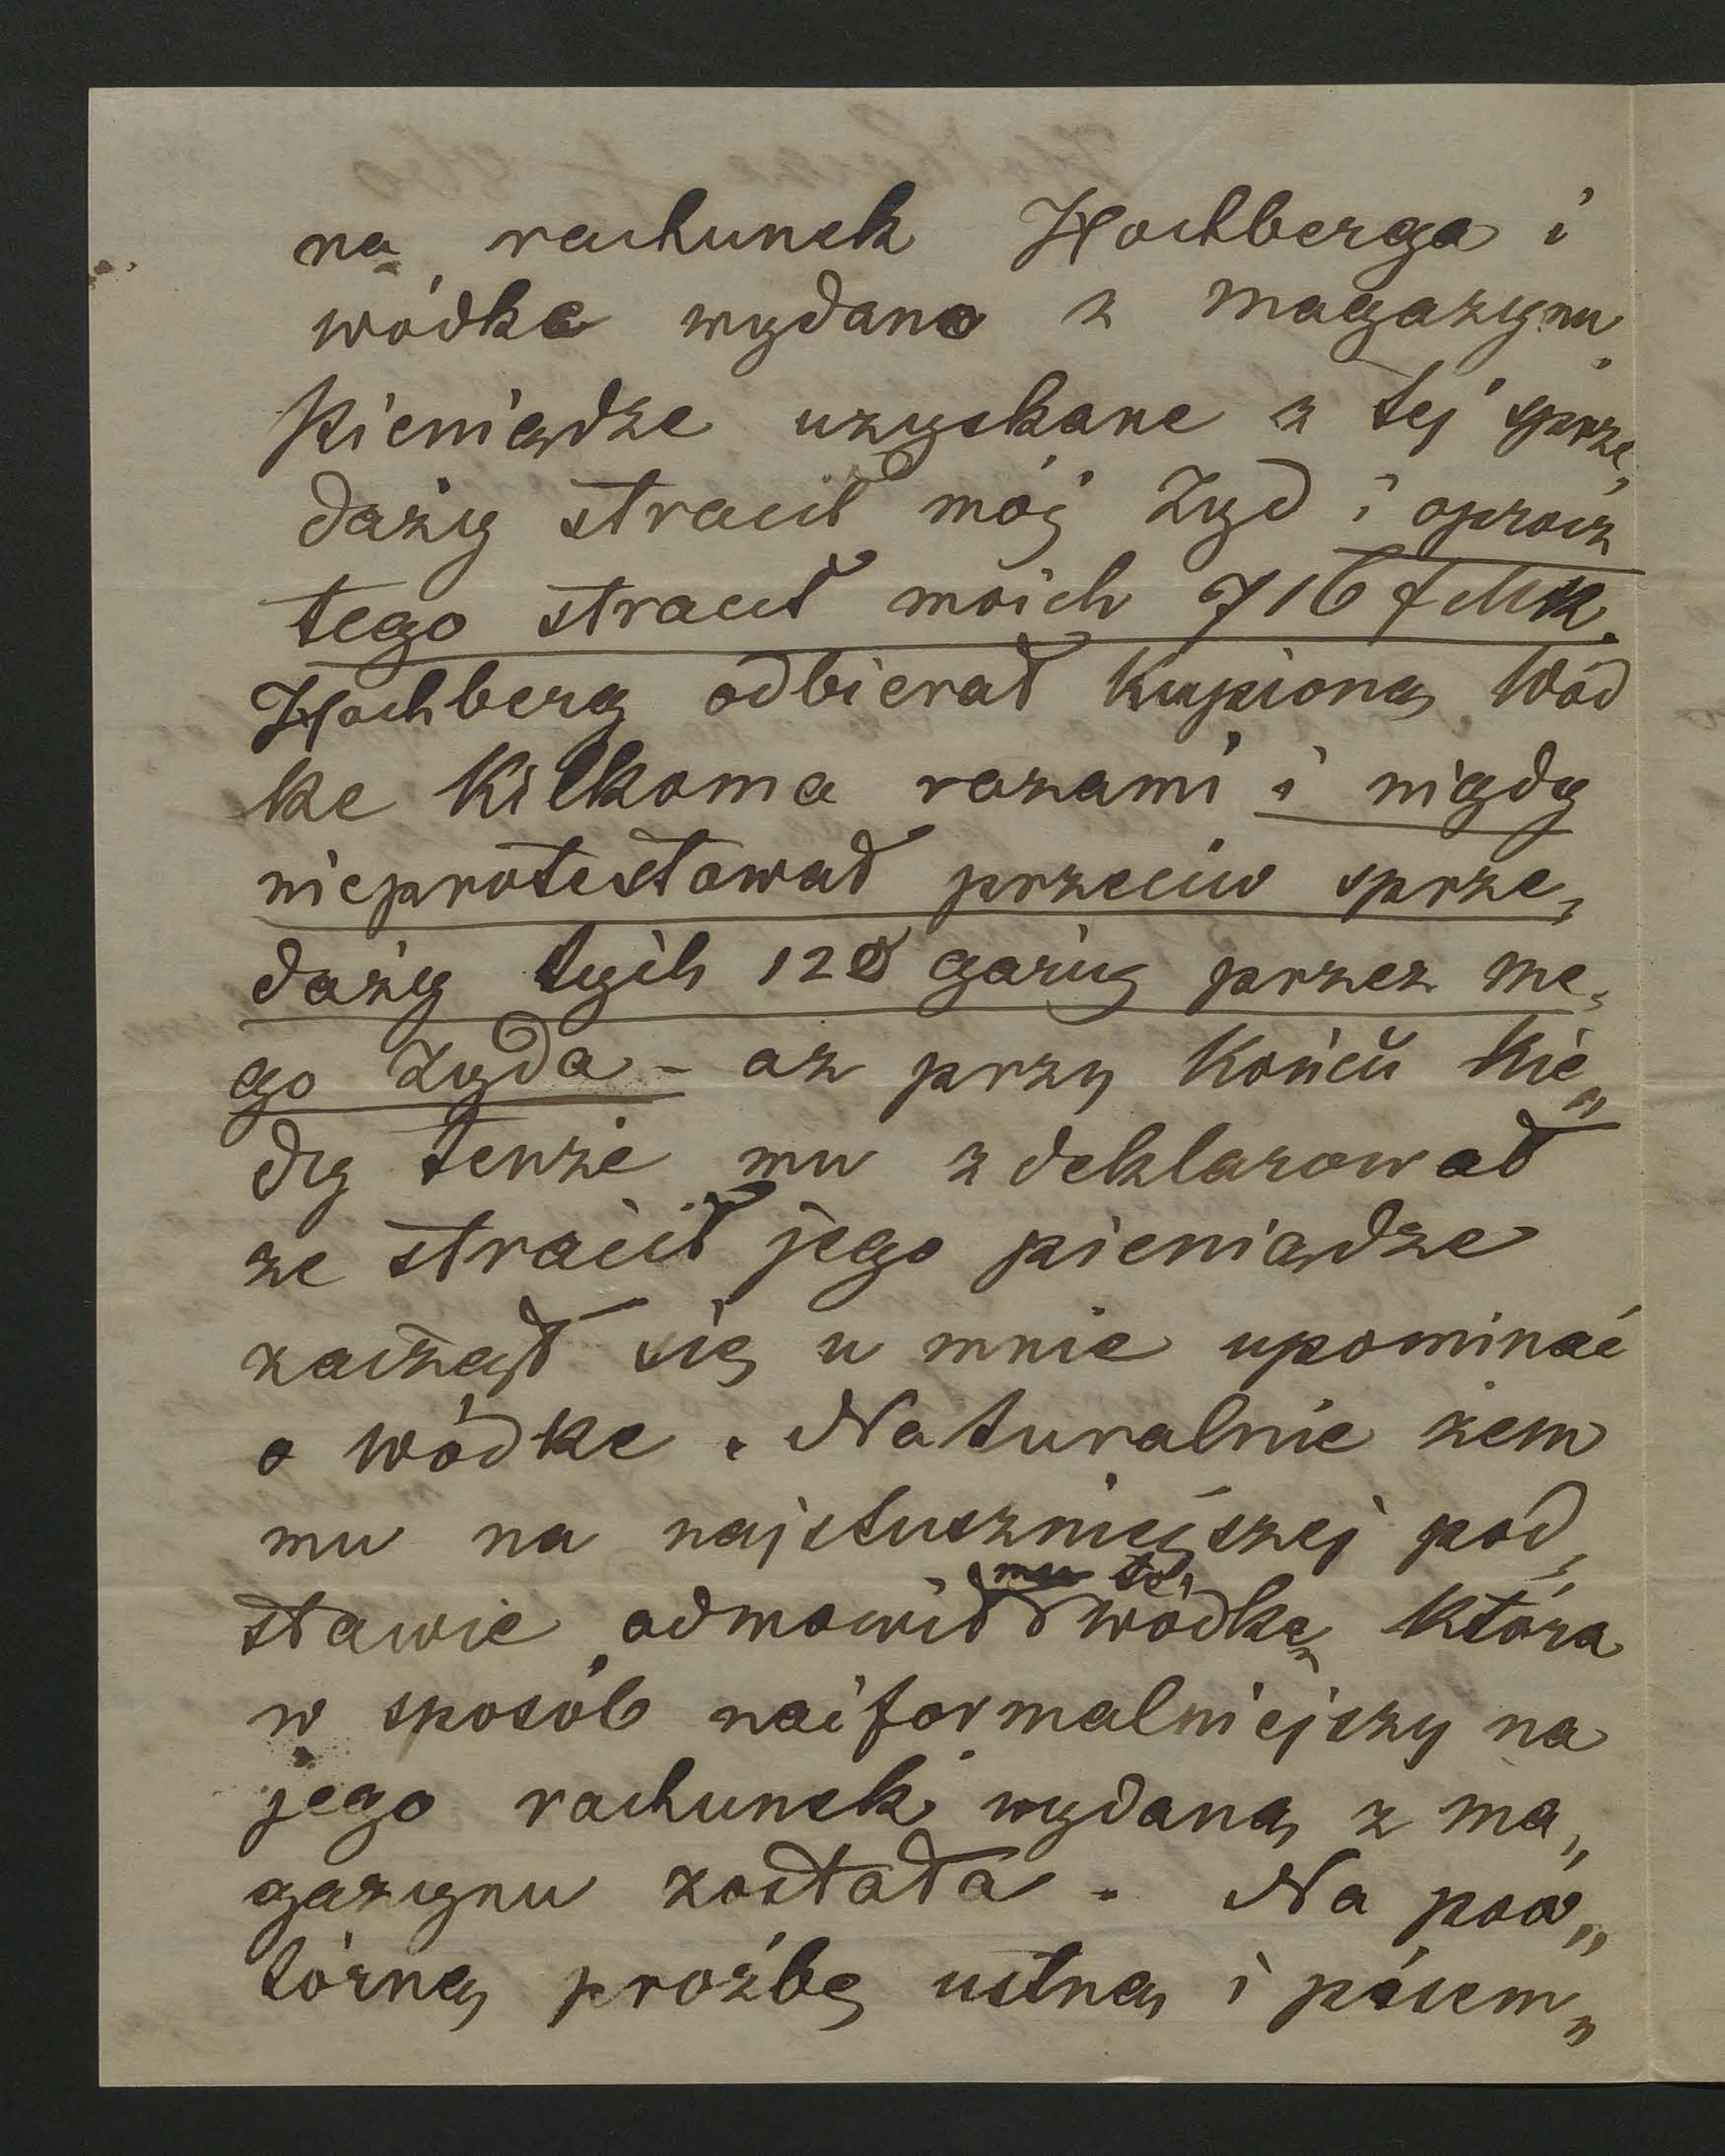 na rachunek Hochberga i
wódke wydano z magazynu.
Pieniądze uzyskane z tej sprze„
daży stracił mój Żyd i oprócz
tego stracił moich 716 f Mk.
Hochberg odbierał kupioną Wód
ke Kilkoma razami i nigdy
nieprotestował przeciw sprze„
daży tych 120 garcy przez me„
go Żyda – az przy Końcu Kie„
dy tenże mu zdeklarował
ze stracił jego pieniądze
zaczął się u mnie upominać
o wódke. Naturalnie żem
mu na najsłuszniejszej pod„
stawie odmowił mu tę wódkę, Która
w sposób naiformalniejszy na
jego rachunek wydaną z ma„
gazynu została. Na pow„
tórną prożbę ustną i pisem„